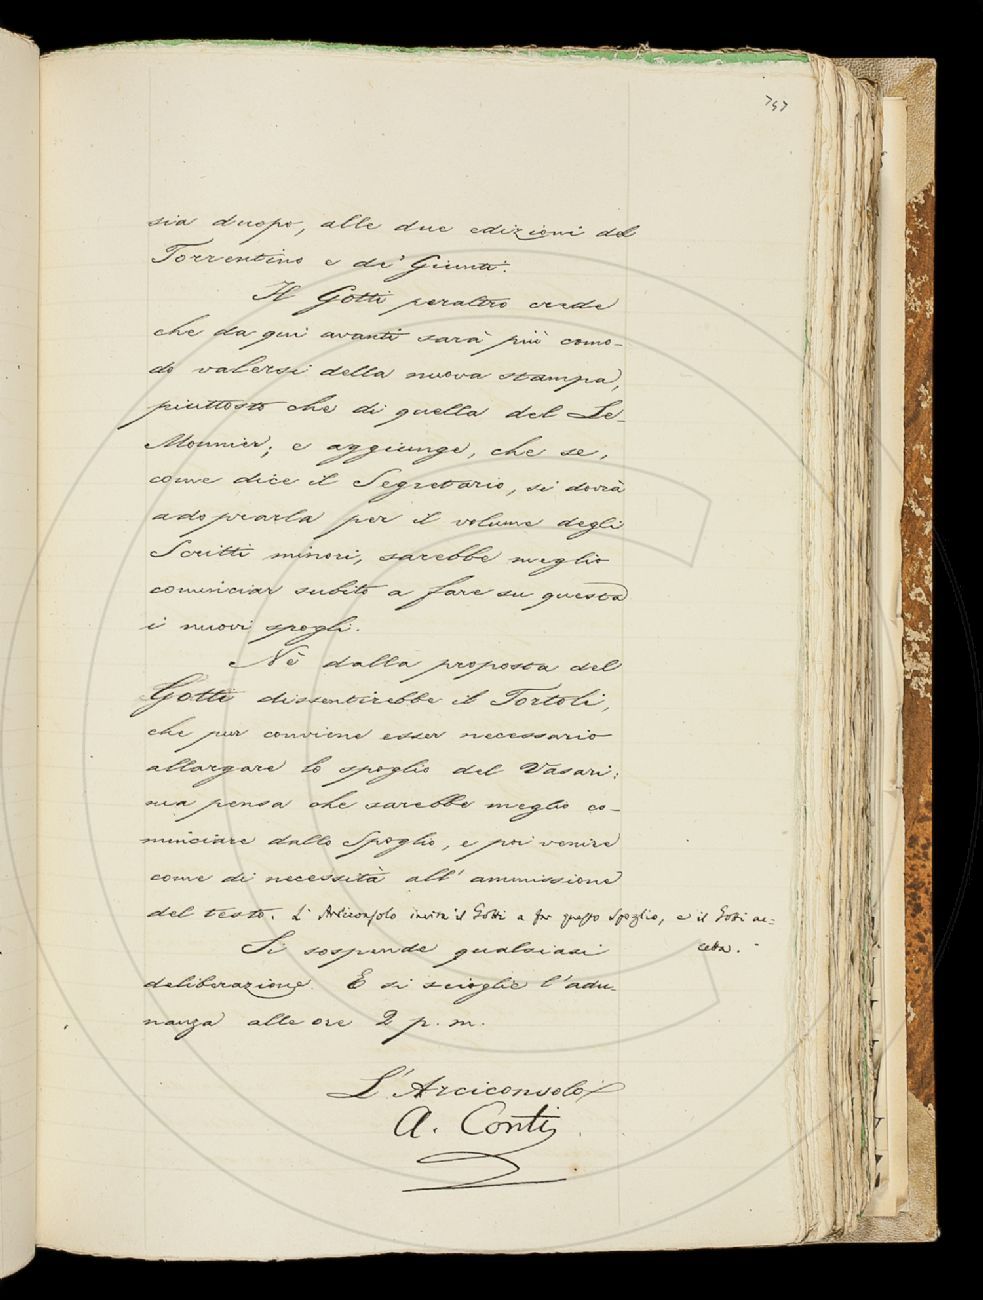 757
sia duopo, alle due edizioni del
Torrentino e de' Giunti.
Il Gotti peraltro crede
che da qui avanti sarà più como-
do valersi della nuova stampa,
piuttosto che di quella del Le-
Monnier; e aggiunge, che se,
come dice il Segretario, si dovrà
adoprarla per il volume degli
Scritti minori, sarebbe meglio
cominciar subito a fare su questa
i nuovi spogli.
Nè dalla proposta del
Gotti dissentirebbe il Tortoli,
che pur conviene esser necessario
allargare lo spoglio del Vasari;
ma pensa che sarebbe meglio co-
minciare dallo Spoglio, e poi venire
come di necessità all'ammissione
del testo. L'Arciconsolo invita il Gotti a far questo Spoglio, e il Gotti ac-
cetta.
Si sospende qualsiasi
deliberazione. E si scioglie l'adu-
nanza alle ore 2 p. m.
L'Arciconsolo
A. Conti